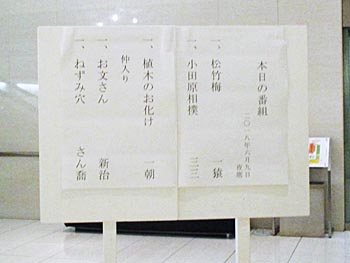 本日の番組
二〇一八年六月九日
夜席
一、松竹梅 一猿
一、小田原相撲 三三
一、植木のお化け 一朝
仲入り
一、お文さん 新治
一、ねずみ穴 さん喬